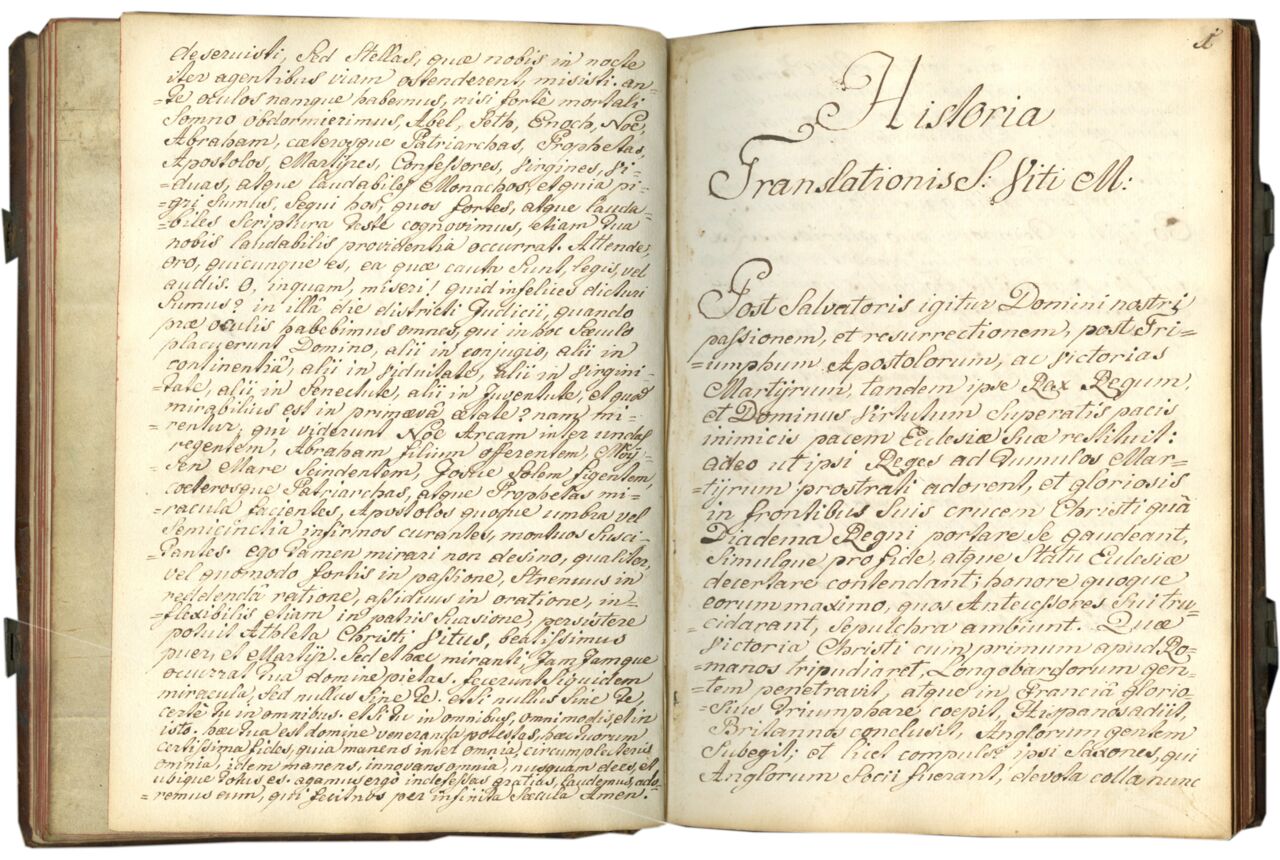 deseruisti, Sed Stellas, quæ nobis in nocte
iter agentibus viam ostenderent, misisti. an-
=te oculos namque habemus, nisi fortè mortali
Somno obdormierimus, Abel, Seth, Enoch, Noë,
Abraham, cæterosque Patriarchas, Prophetas,
Apostolos, Martÿres, Confessores, Virgines, Vi-
=duas, atque laudabiles Monachos, et quia pi-
=gri Sumus, Sequi hos, quos fortes, atque lauda-
=biles Scriptura teste cognovimus, etiam tua
nobis laudabilis providentia occurrat. Attende,
oro, quicunque es, ea quæ cauta Sunt, legis, vel
audis. O, inquam, miseri! quid infelices dicturi
Sumus? in illâ die districti Judicii, quando
præ oculis habebimus omnes, qui in hoc Sæculo
placuerunt Domino, alii in conjugio, alii in
continentiâ, alii in Viduitate, alii in Virgini-
=tate, alii in Senectute, alii in Juventute, et quod
mirabilius est in primævâ ætate? nam mi-
=rentur, qui viderunt Noë Arcam inter undas
regentem, Abraham filium offerentem, Moÿ-
=sen Mare Scindentem, Josue Solem figentem,
cæterosque Patriarchas, atque Prophetas mi-
=racula facientes, Apostolos quoque umbra vel
Semicinctia infirmos curantes, mortuos Susci-
=tantes. ego tamen mirari non desino, qualiter,
vel quomodo fortis in passione, Strenuus in
reddenda ratione, assiduus in oratione, in-
=flexibilis etiam in patris Suasione, persistere
potuit Athleta Christi Vitus, beatissimus
puer, et Martÿr. Sed et hæc miranti, Jam Jamque
occurrat tua domine pietas. fecerunt Siquidem
miracula, Sed nullus Sine te. et Si nullus Sine te,
certè tu in omnibus. et Si tu in omnibus, omnimodis, et in
isto. hæc tua est domine veneranda potestas, hæc tuorum
certissima fides, quia manens in te omnia, circumplecteris
omnia, idem manens, innovans omnia, nusquam dees, et
ubique totus es. agamus ergò indefessas gratias, laudemus, ado-
=remus eum, qui fecit nos per infinita Sæcula Amen.
1
Historia
Translationis S: Viti M:
Post Salvatoris igitur Domini nostri
passionem, et resurrectionem, post Tri-
=umphum Apostolorum, ac Victorias
Martÿrum, tandem ipse Rex Regum,
et Dominus Virtutum Superatis pacis
inimicis pacem Ecclesiæ Suæ restituit:
adeo ut ipsi Reges ad tumulos Mar-
=tÿrum prostrati adorent, et gloriosis
in frontibus Suis crucem Christi quâ
Diadema Regni portare se gaudeant,
Simulque pro fide, atque Statu Ecclesiæ
decertare contendant; honore quoque
eorum maximo, quos Antecessores Sui tru-
=cidarant, Sepulchra ambiunt. Quæ
Victoria Christi cum primum apud Ro-
=manos tripudiaret, Longobardorum gen-
=tem penetravit, atque in Franciâ glorio-
=sius triumphare coepit, Hispanos adiit,
Britannos conclusit, Anglorum gentem
Subegit; et licet compulsi ipsi Saxones, qui
Anglorum Socii fuerant, devota colla nunc